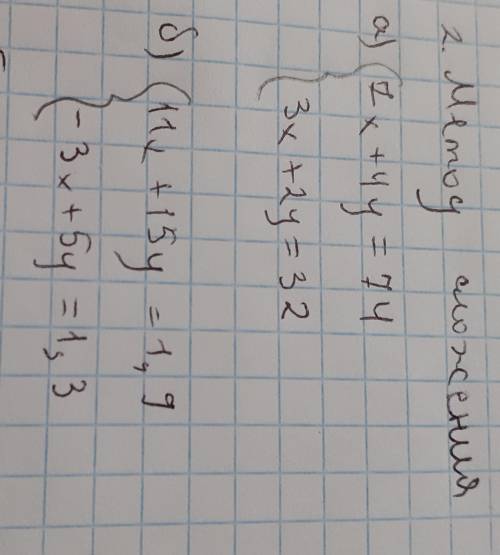 2. Метод сложения
а) { 7x + 4y = 74
3x + 2y = 32
б) { 11x + 15y = 1,9
- 3x + 5y = 1,3